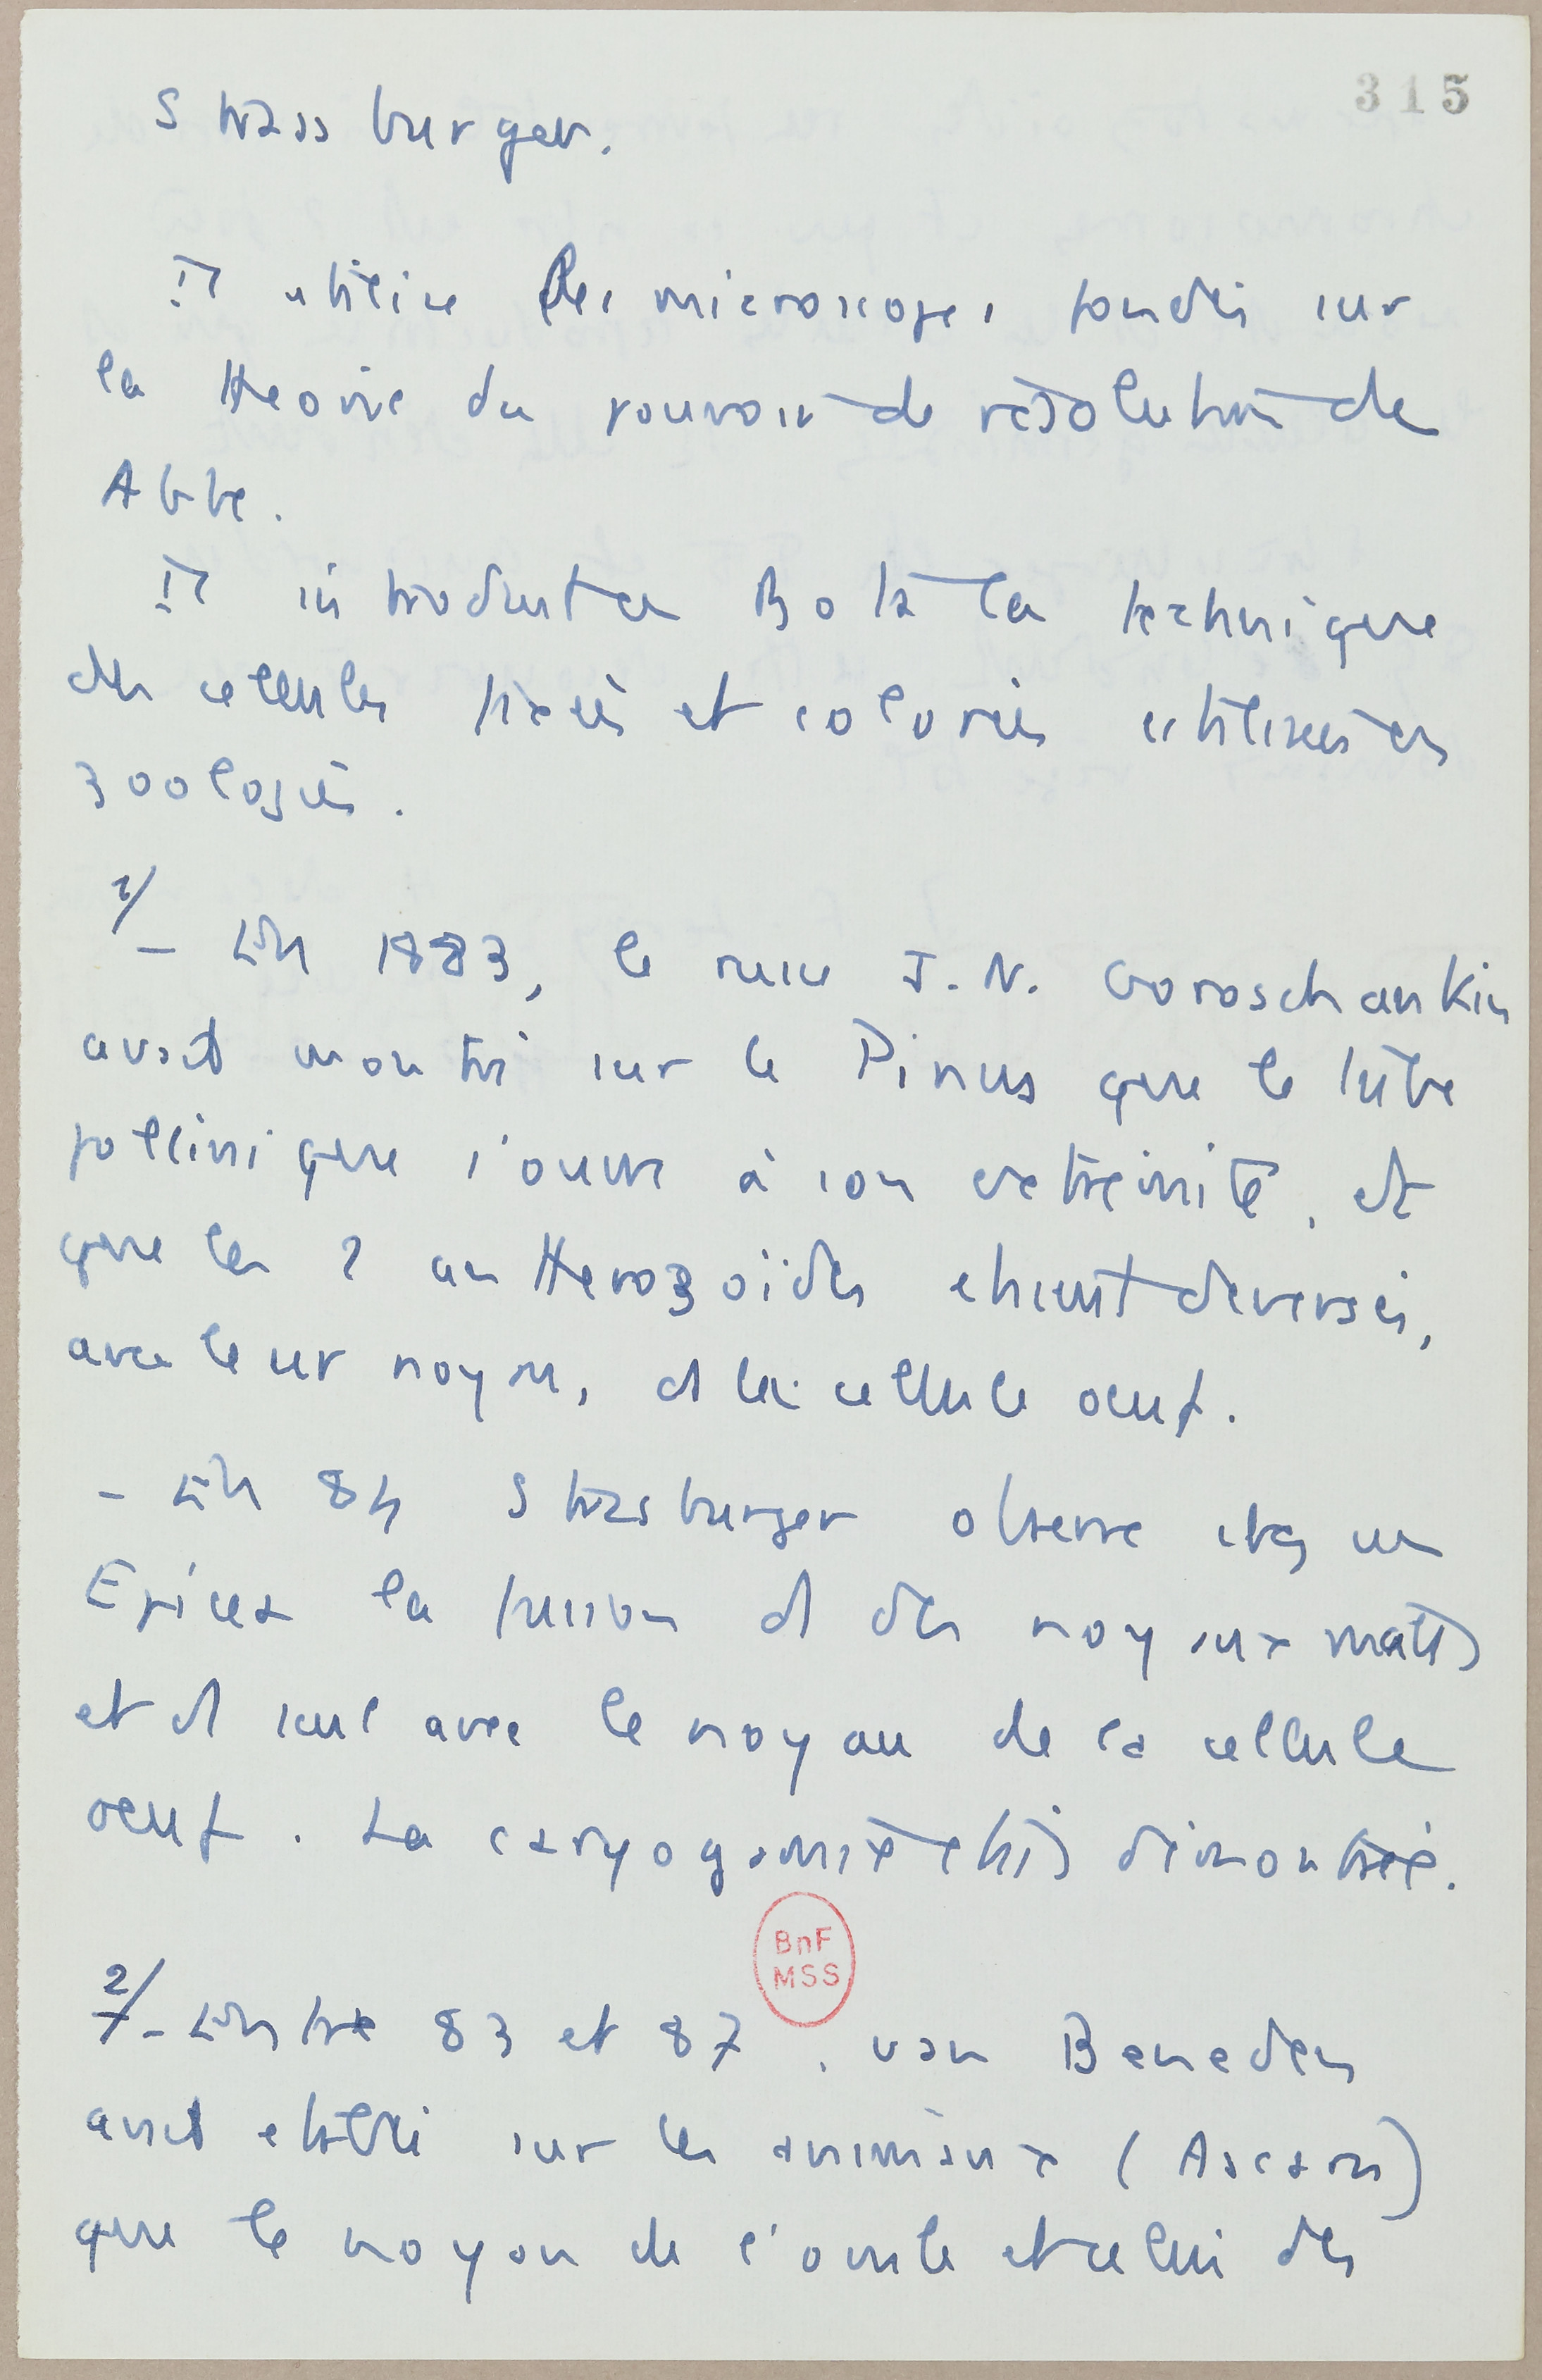 315
Strassburger.
Il utilise des microscopes fondés sur
la theorie du pouvoir de résolution de
Abbe.
Il introduit en Bota la technique
des cellules fixées et colorées utilisées en
zoologie.
1/
- En 1883, le russe J. N. Goroschankin
avait montré sur le Pinus que le tube
pollinique s'ouvre à son extrémité, et
que les 2 antherozoïdes etaient deversés,
avec leur noyau, ds la cellule oeuf.
- En 84 Strasburger observe chez un
Epicea la fusion d des noyaux males
et d seul avec le noyau de la cellule
oeuf. La caryogamie etait démontrée.
BnF
MSS
2/- Entre 83 et 87, van Beneden
avait etabli sur les animaux (Ascaris)
que le noyau de l'ovule et celui des